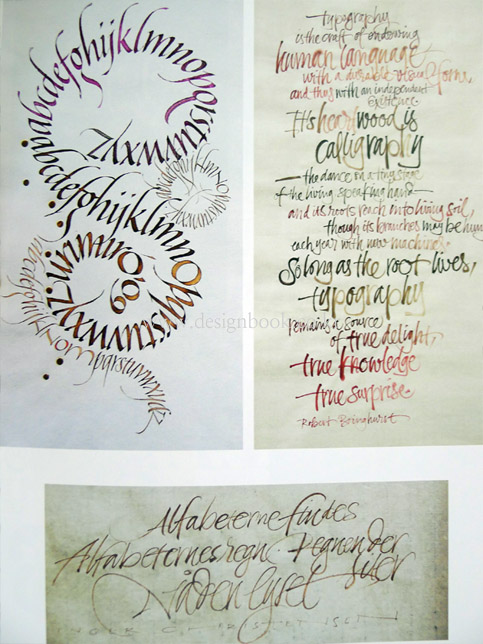 abcdefghijklmnopqrstuvwxyz
abcdefghijklmnopqrstuvwxyz
typography
is the craft of endowing
human language
with a durable visual form,
and thus with an independent
existence.
It's heartwood is
calligraphy
—the dance on a tiny stage
of the living speaking hand—
and its roots reach into living soil,
though its branches may be hung
each year with new machines.
So long as the root lives,
typography
remains a source
of true delight,
true knowledge
true surprise.
Robert Bringhurst
designbook
Alfabeterne findes
Alfabeternes regn. Regnen der
suser
Nåden lyset